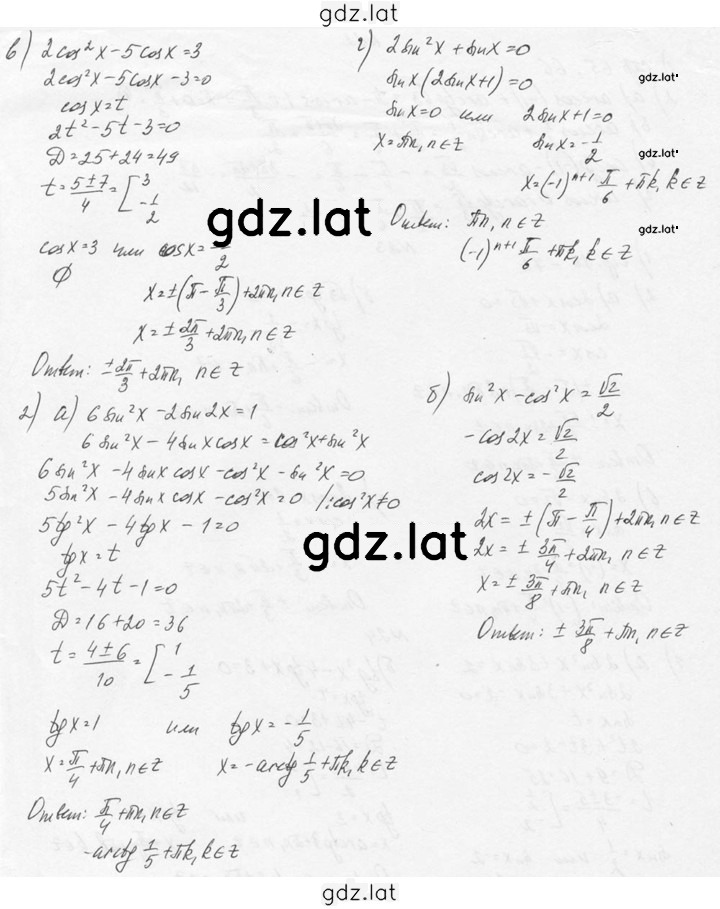 gdz.lat
в) 2cos²x-5cosx=3
2cos²x-5cosx-3=0
cosx=t
2t²-5t-3=0
D=25+24=49
t=(5±7)/4=[3; -1/2
cosx=3 или cosx=-1/2
∅
x=±(π-π/3)+2πn, n∈Z
x=±2π/3+2πn, n∈Z
Ответ: ±2π/3+2πn, n∈Z
г) 2sin²x+sinx=0
sinx(2sinx+1)=0
sinx=0 или 2sinx+1=0
x=πn, n∈Z sinx=-1/2
x=(-1)ⁿ⁺¹ π/6+πk, k∈Z
Ответ: πn, n∈Z
(-1)ⁿ⁺¹ π/6+πk, k∈Z
gdz.lat
gdz.lat
gdz.lat
gdz.lat
2) а) 6sin²x-2sin2x=1
6sin²x-4sinxcosx=cos²x+sin²x
6sin²x-4sinxcosx-cos²x-sin²x=0
5sin²x-4sinxcosx-cos²x=0 /:cos²x≠0
5tg²x-4tgx-1=0
tgx=t
5t²-4t-1=0
D=16+20=36
t=(4±6)/10=[1; -1/5
tgx=1 или tgx=-1/5
x=π/4+πn, n∈Z x=-arctg 1/5+πk, k∈Z
Ответ: π/4+πn, n∈Z
-arctg 1/5+πk, k∈Z
б) sin²x-cos²x=√2/2
-cos2x=√2/2
cos2x=-√2/2
2x=±(π-π/4)+2πn, n∈Z
2x=±3π/4+2πn, n∈Z
x=±3π/8+πn, n∈Z
Ответ: ±3π/8+πn, n∈Z
gdz.lat
gdz.lat